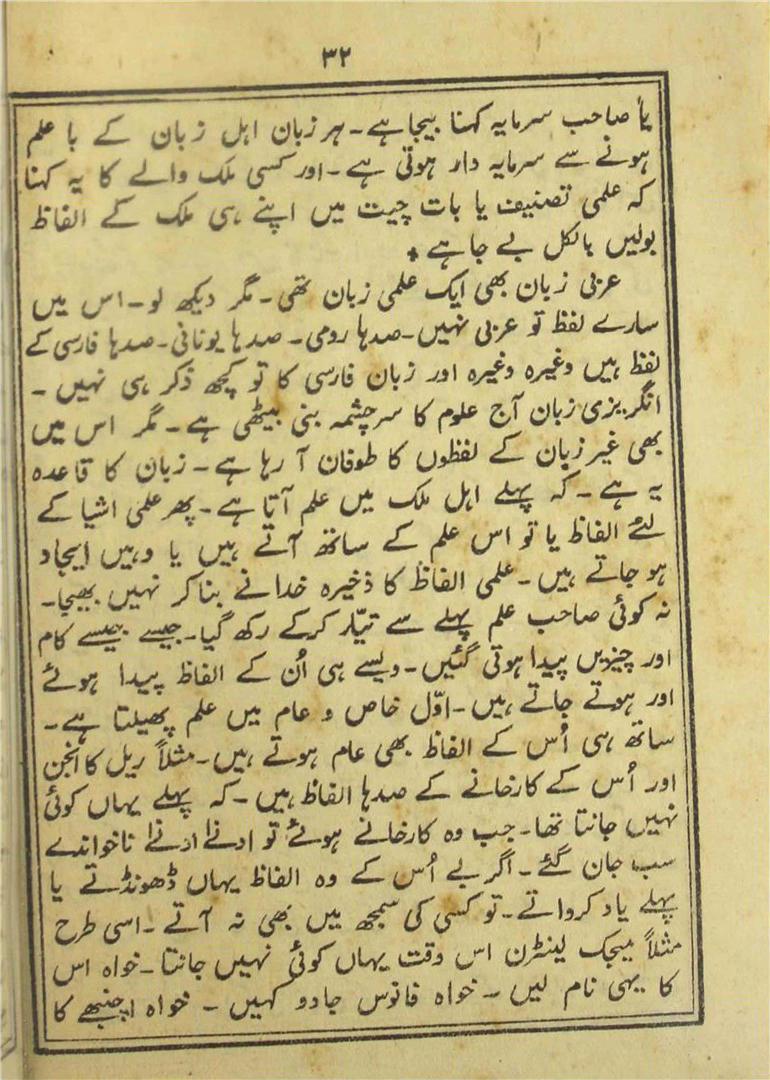 ۳۲
یا صاحب سرمایہ کہنا بیجاہے۔ ہر زبان اہل زبان کے با علم
ہونے سے سرمایہ دار ہوتی ہے۔ اور کسی ملک والے کا یہ کہنا
کہ علمی تصنیف یا بات چیت میں اپنے ہی ملک کے الفاظ
بولیں بالکل بے جا ہے +
عربی زبان بھی ایک علمی زبان تھی۔ مگر دیکھ لو۔ اس میں
سارے لفظ تو عربی نہیں۔ صدہا رومی۔ صدہا یونانی۔ صدہا فارسی کے
لفظ ہیں وغیرہ وغیرہ اور زبان فارسی کا تو کچھ ذکر ہی نہیں۔
انگریزی زبان آج علوم کا سرچشمہ بنی بیٹھی ہے۔ مگر اس میں
بھی غیر زبان کے لفظوں کا طوفان آ رہا ہے۔ زبان کا قاعدہ
یہ ہے۔ کہ پہلے اہل ملک میں علم آتا ہے۔ پھر علمی اشیا کے
لئے الفاظ یا تو اس علم کے ساتھ آتے ہیں یا وہیں ایجاد
ہو جاتے ہیں۔ علمی الفاظ کا ذخیرہ خدا نے بنا کر نہیں بھیجا۔
نہ کوئی صاحب علم پہلے سے تیّار کرکے رکھ گیا۔ جیسے جیسے کام
اور چیزیں پیدا ہوتی گئیں۔ ویسے ہی اُن کے الفاظ پیدا ہوئے
اور ہوتے جاتے ہیں۔ اوّل خاص و عام میں علم پھیلتا ہے۔
ساتھ ہی اُس کے الفاظ بھی عام ہوتے ہیں۔ مثلاً ریل کا انجن
اور اُس کے کارخانے کے صدہا الفاظ ہیں۔ کہ پہلے یہاں کوئی
نہیں جانتا تھا۔ جب وہ کارخانے ہوئے تو ادنےٰ ادنےٰ ناخواندے
سب جان گئے۔ اگر بے اُس کے وہ الفاظ یہاں ڈھونڈتے یا
پہلے یاد کرواتے۔ تو کسی کی سمجھ میں بھی نہ آتے۔ اسی طرح
مثلاً میجک لینٹرن اس وقت یہاں کوئی نہیں جانتا۔ خواہ اس
کا یہی نام لیں۔ خواہ فانوس جادو کہیں۔ خواہ اچنبھے کا